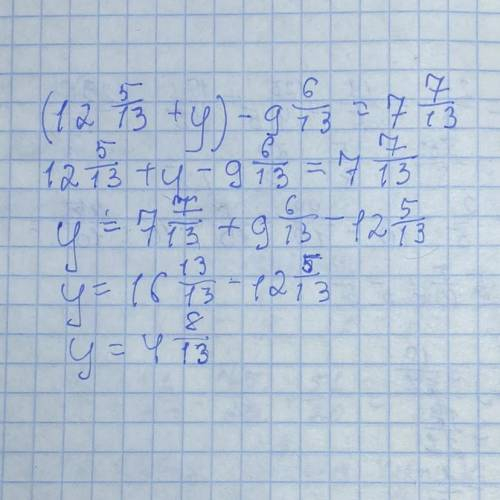 (12 5/13 + y) - 9 6/13 = 7 7/13
12 5/13 + y - 9 6/13 = 7 7/13
y = 7 7/13 + 9 6/13 - 12 5/13
y = 16 13/13 - 12 5/13
y = 4 8/13